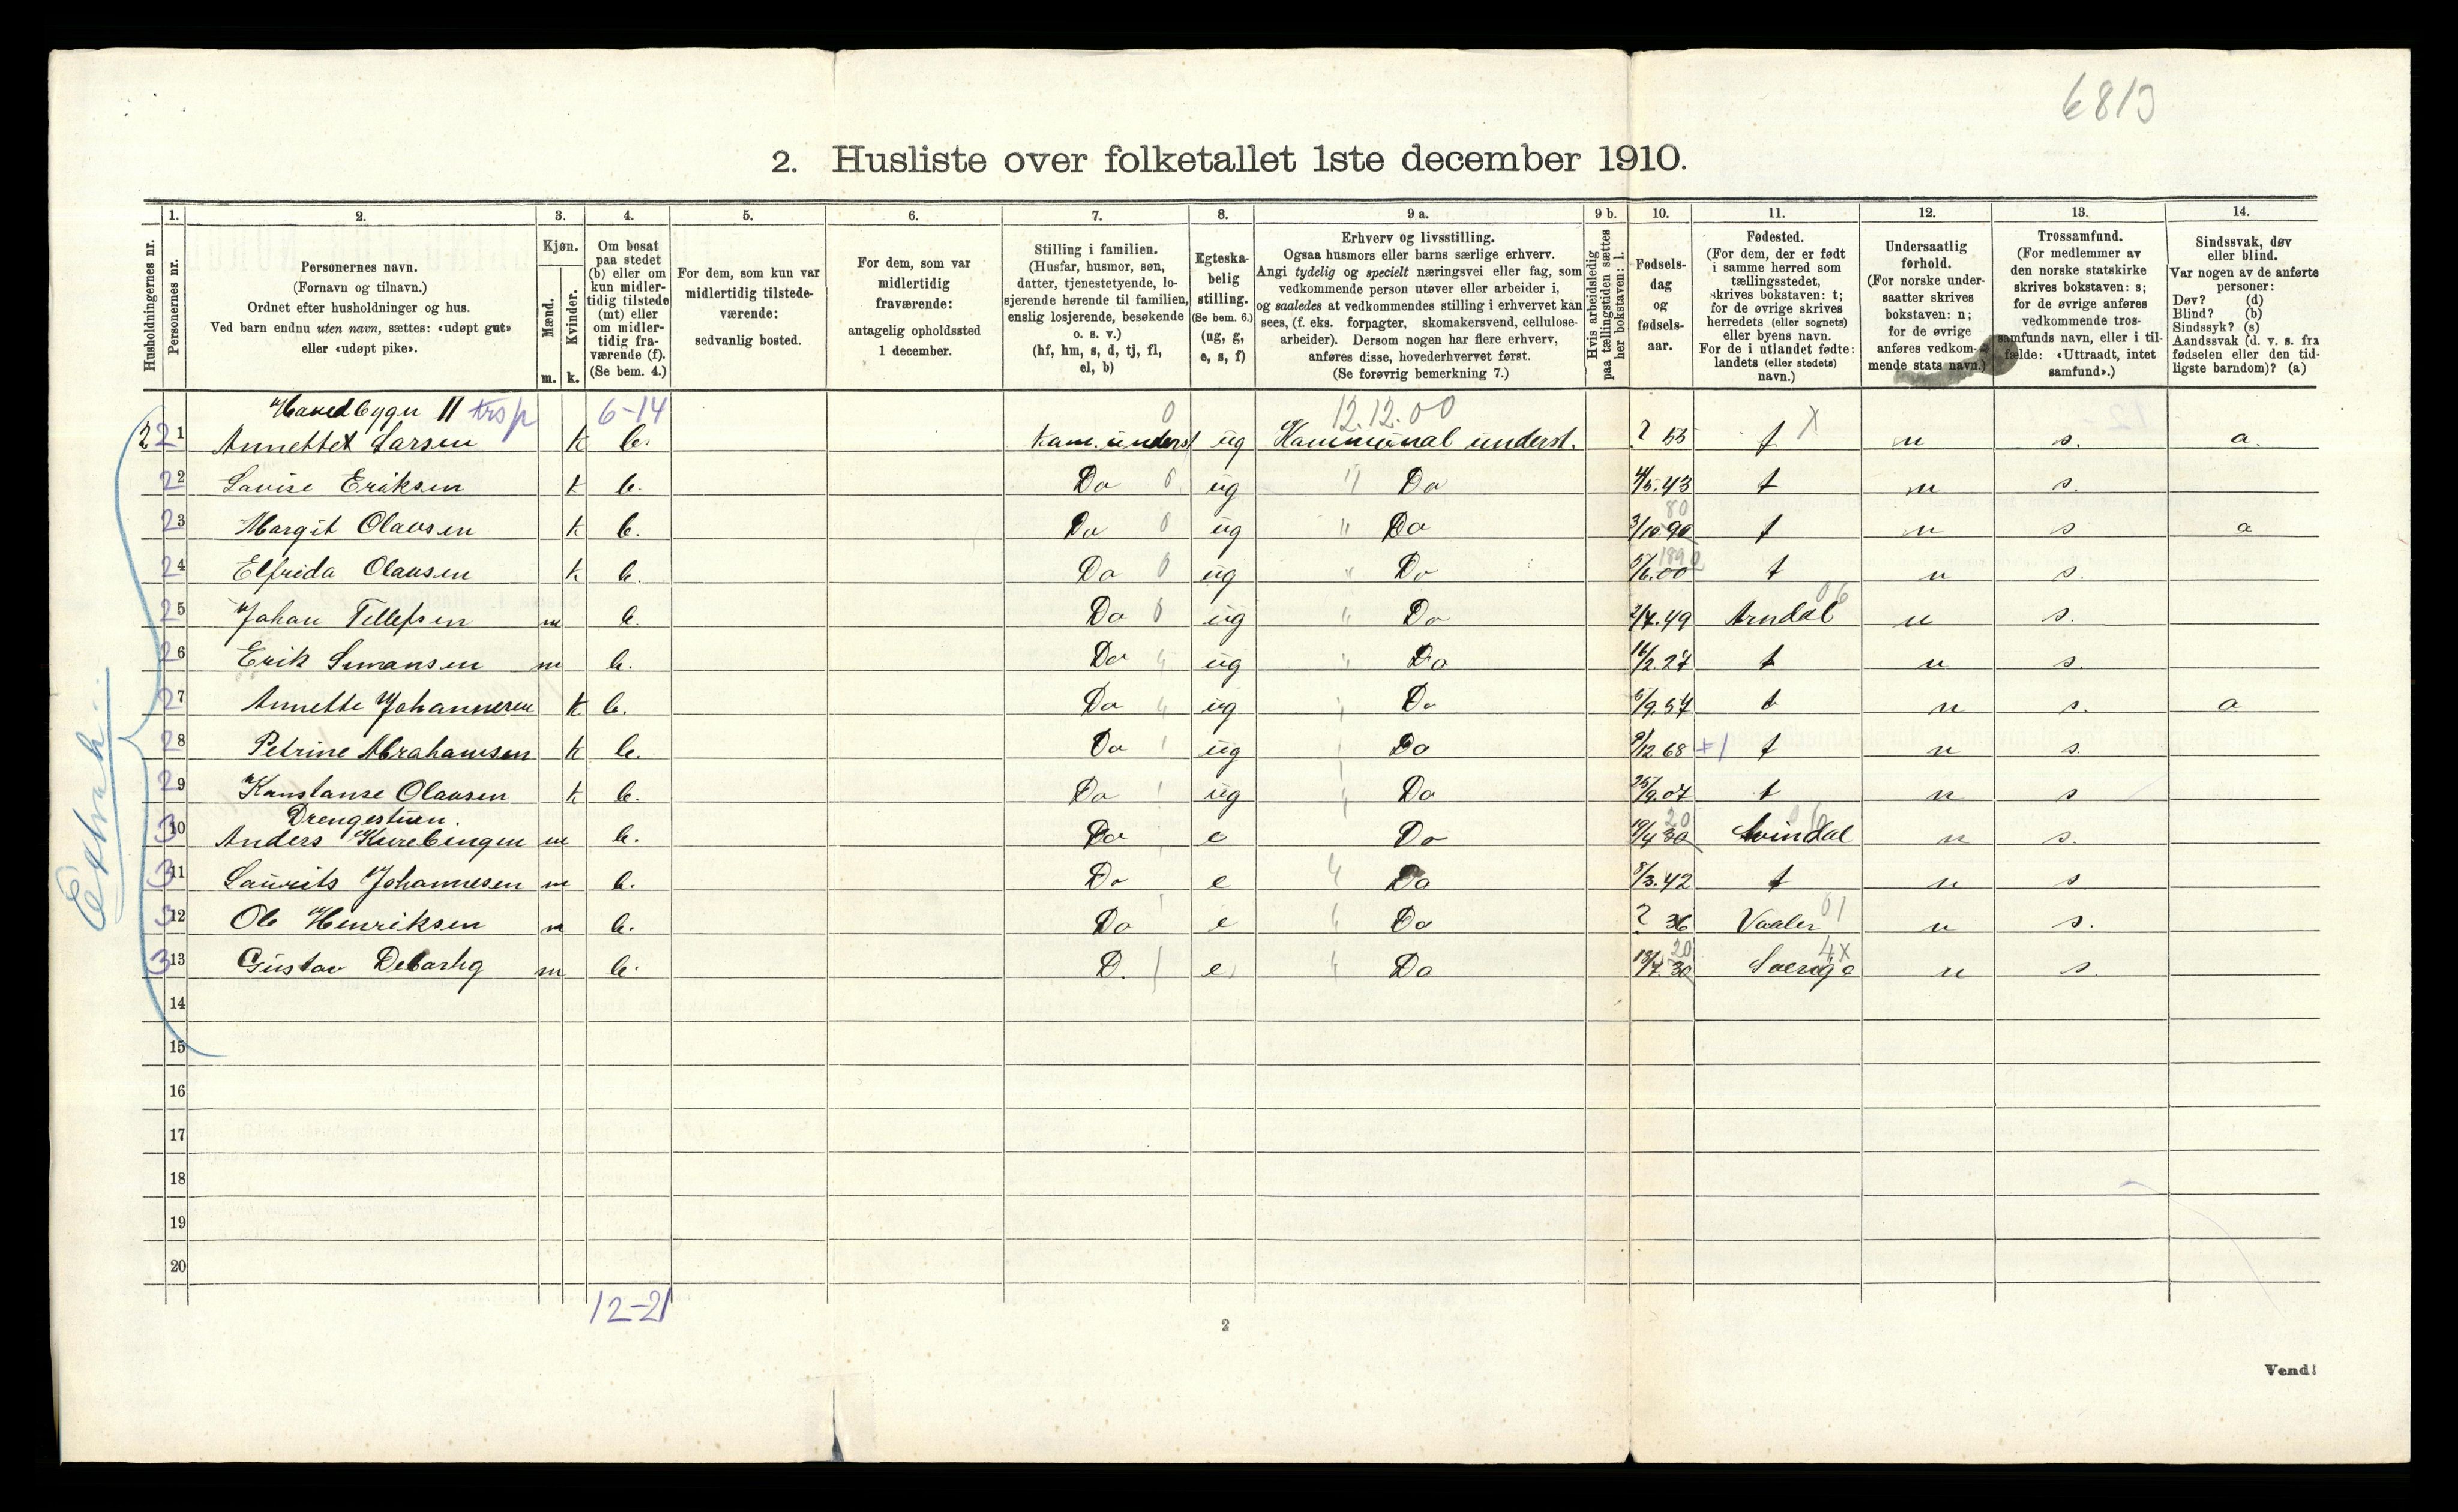 6813
2. Husliste over folketallet 1ste december 1910.
Husholdningernes nr.
1. Personernes nr.
2. Personernes navn.
(Fornavn og tilnavn.)
Ordnet efter husholdninger og hus.
Ved barn endnu uten navn, sættes: «udøpt gut»
eller «udøpt pike».
3. Kjøn.
Mænd. m.
Kvinder. k.
4. Om bosat
paa stedet
(b) eller om
kun midler-
tidig tilstede
(mt) eller
om midler-
tidig fra-
værende (f).
(Se bem. 4.)
5. For dem, som kun var
midlertidig tilstede-
værende:
sedvanlig bosted.
6. For dem, som var
midlertidig
fraværende:
antagelig opholdssted
1 december.
7. Stilling i familien.
(Husfar, husmor, søn,
datter, tjenestetyende, lo-
sjerende hørende til familien,
enslig losjerende, besøkende
o. s. v.)
(hf, hm, s, d, tj, fl,
el, b)
8. Egteska-
belig
stilling.
(Se bem. 6.)
(ug, g,
e, s, f)
9 a. Erhverv og livsstilling.
Ogsaa husmors eller barns særlige erhverv.
Angi tydelig og specielt næringsvei eller fag, som
vedkommende person utøver eller arbeider i,
og saaledes at vedkommendes stilling i erhvervet kan
sees, (f. eks. forpagter, skomakersvend, cellulose-
arbeider). Dersom nogen har flere erhverv,
anføres disse, hovederhvervet først.
(Se forøvrig bemerkning 7.)
9 b. Hvis arbeidsledig
paa tællingstiden sættes
her bokstaven: l.
10. Fødsels-
dag
og
fødsels-
aar.
11. Fødested.
(For dem, der er født
i samme herred som
tællingsstedet,
skrives bokstaven: t;
for de øvrige skrives
herredets (eller sognets)
eller byens navn.
For de i utlandet fødte:
landets (eller stedets)
navn.)
12. Undersaatlig
forhold.
(For norske under-
saatter skrives
bokstaven: n;
for de øvrige
anføres vedkom-
mende stats navn.)
13. Trossamfund.
(For medlemmer av
den norske statskirke
skrives bokstaven: s;
for de øvrige anføres
vedkommende tros-
samfunds navn, eller i til-
fælde: «Uttraadt, intet
samfund».)
14. Sindssvak, døv
eller blind.
Var nogen av de anførte
personer:
Døv? (d)
Blind? (b)
Sindssyk? (s)
Aandssvak (d. v. s. fra
fødselen eller den tid-
ligste barndom)? (a)
II 6-14 0 12.12.00
2 21 Larsen k b. Kom. underst ug Kommunal underst. ? 55 t X n s. a.
22 Lovise Eriksen k b. Do 0 ug " Do 4/5.43 t n s.
23 Margit Olausen k b. Do 0 ug " Do 3/10.90 80 t n s a
24 Elfrida Olausen k b. Do 0 ug " Do 5/6.00 1890 t n s.
25 Johan Tellefsen m b. Do 0 ug " Do 2/7.49 Arndal 06 n s.
26 Erik Simonsen m b. Do " ug " Do 16/2.27 t n s.
27 Annette Johannesen k b. Do " ug " Do 5/9.57 t n s. a
28 Petrine Abrahamsen k b. Do ug Do 9/12 68 t n s.
29 Konstanse Olausen k b. Do ug " Do 25/9.07 t n s
Drengestuen.
310 Anders m b. Do e Do 19/4 30 20 Svindal n s.
311 Laurits Johannesen m b. Do e " Do 8/3.42 t n s
312 Ole Henriksen m b. Do e " Do ? 36 Vaaler 01 n s.
313 Gustav m b. D. e " Do 18/7.30 20 Sverige 4X n s.
14
15
16
17
18
19
20
12-21
2
Vend!